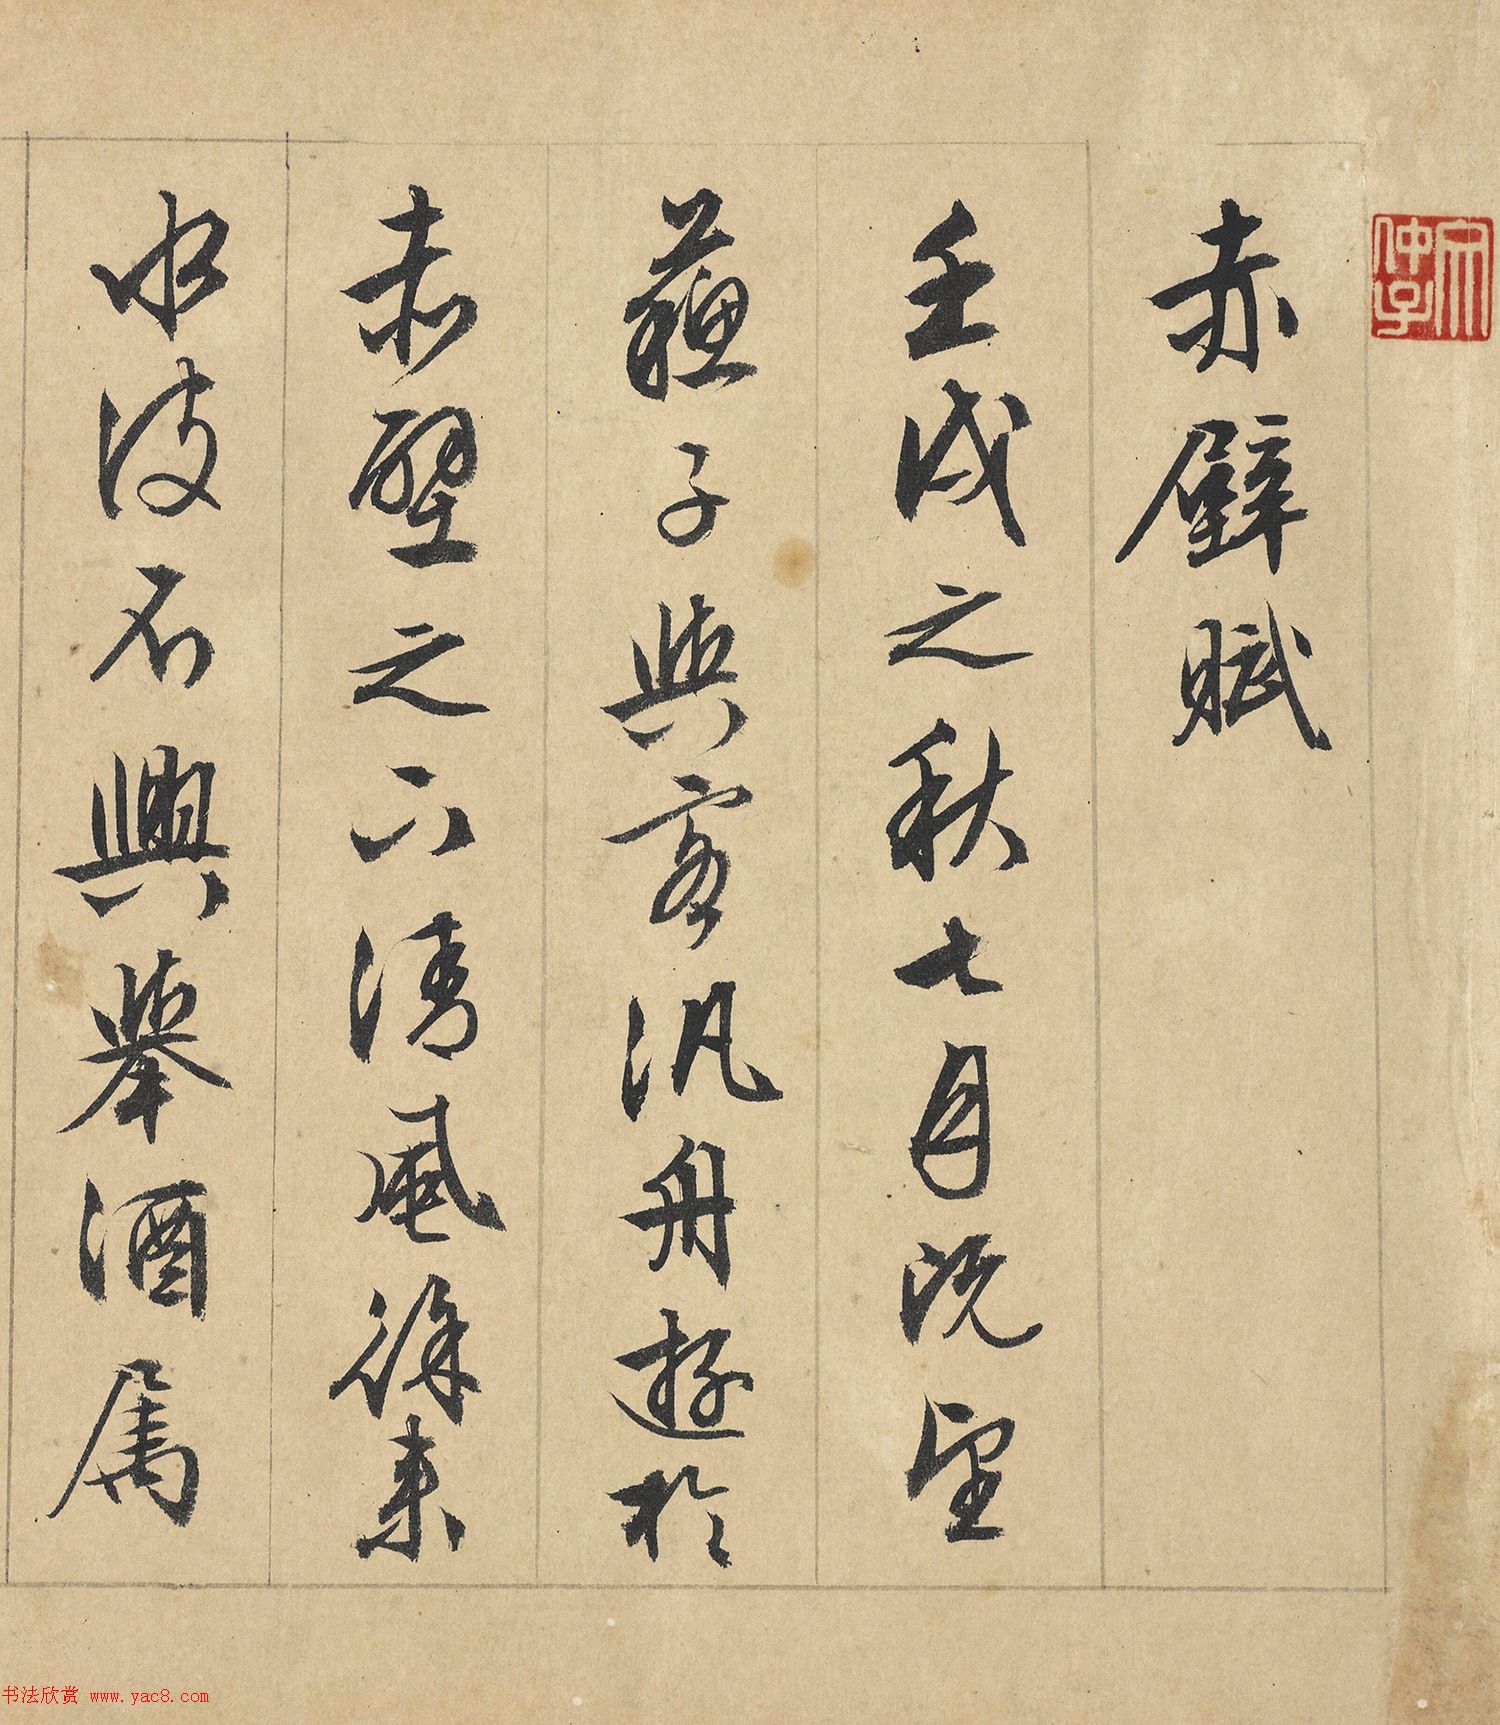 赤壁賦
壬戌之秋七月既望
蘇子與客汎舟遊於
赤壁之下清風徐来
水波不興舉酒属
书法欣赏 www.yac8.com